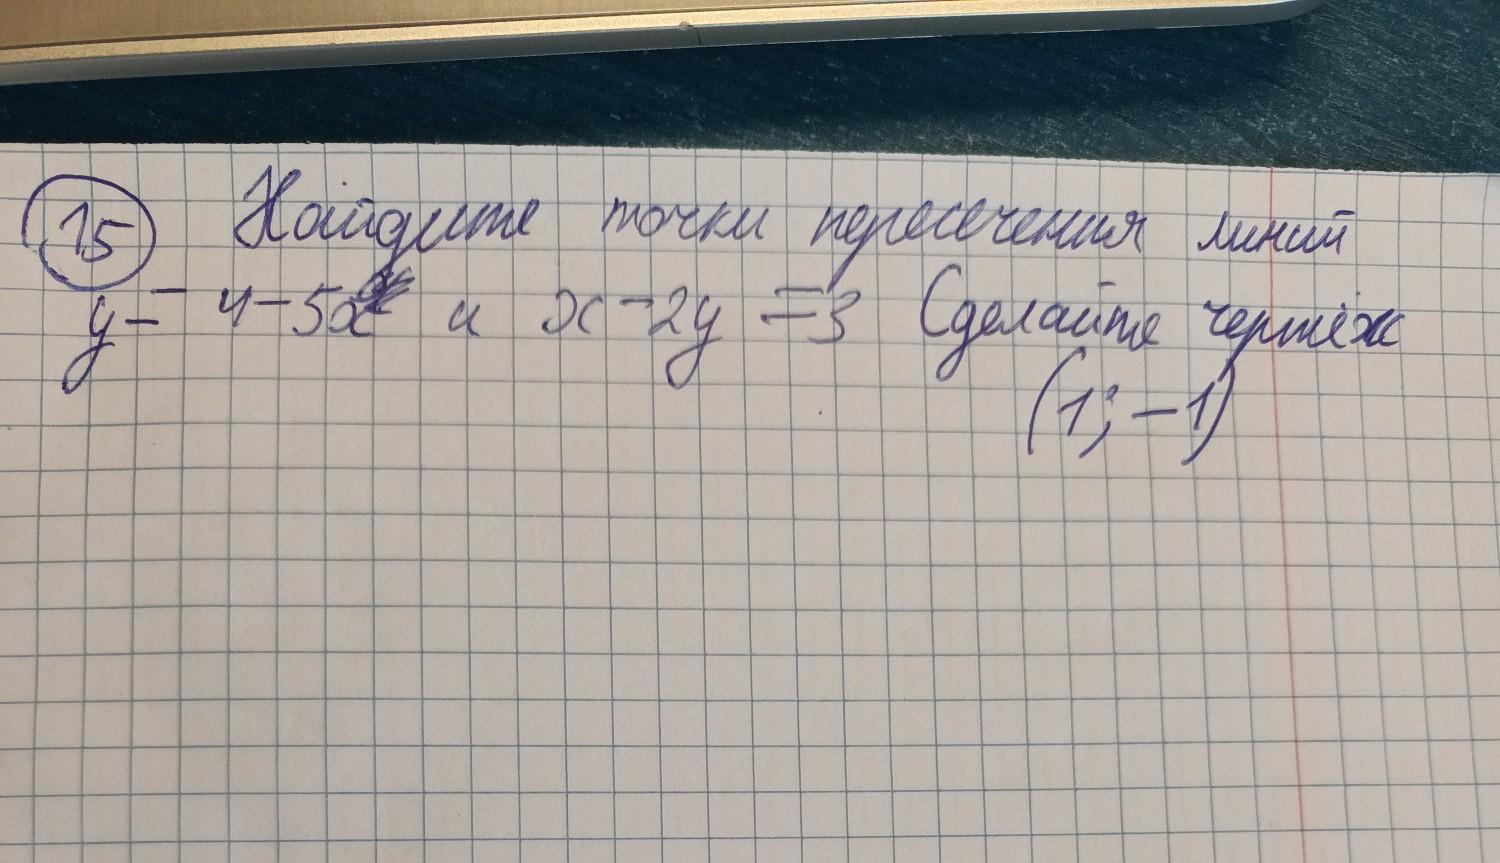 15 Найдите точки пересечения линий
y = 4 - 5x и x - 2y = 3 Сделайте чертёж
(1; -1)